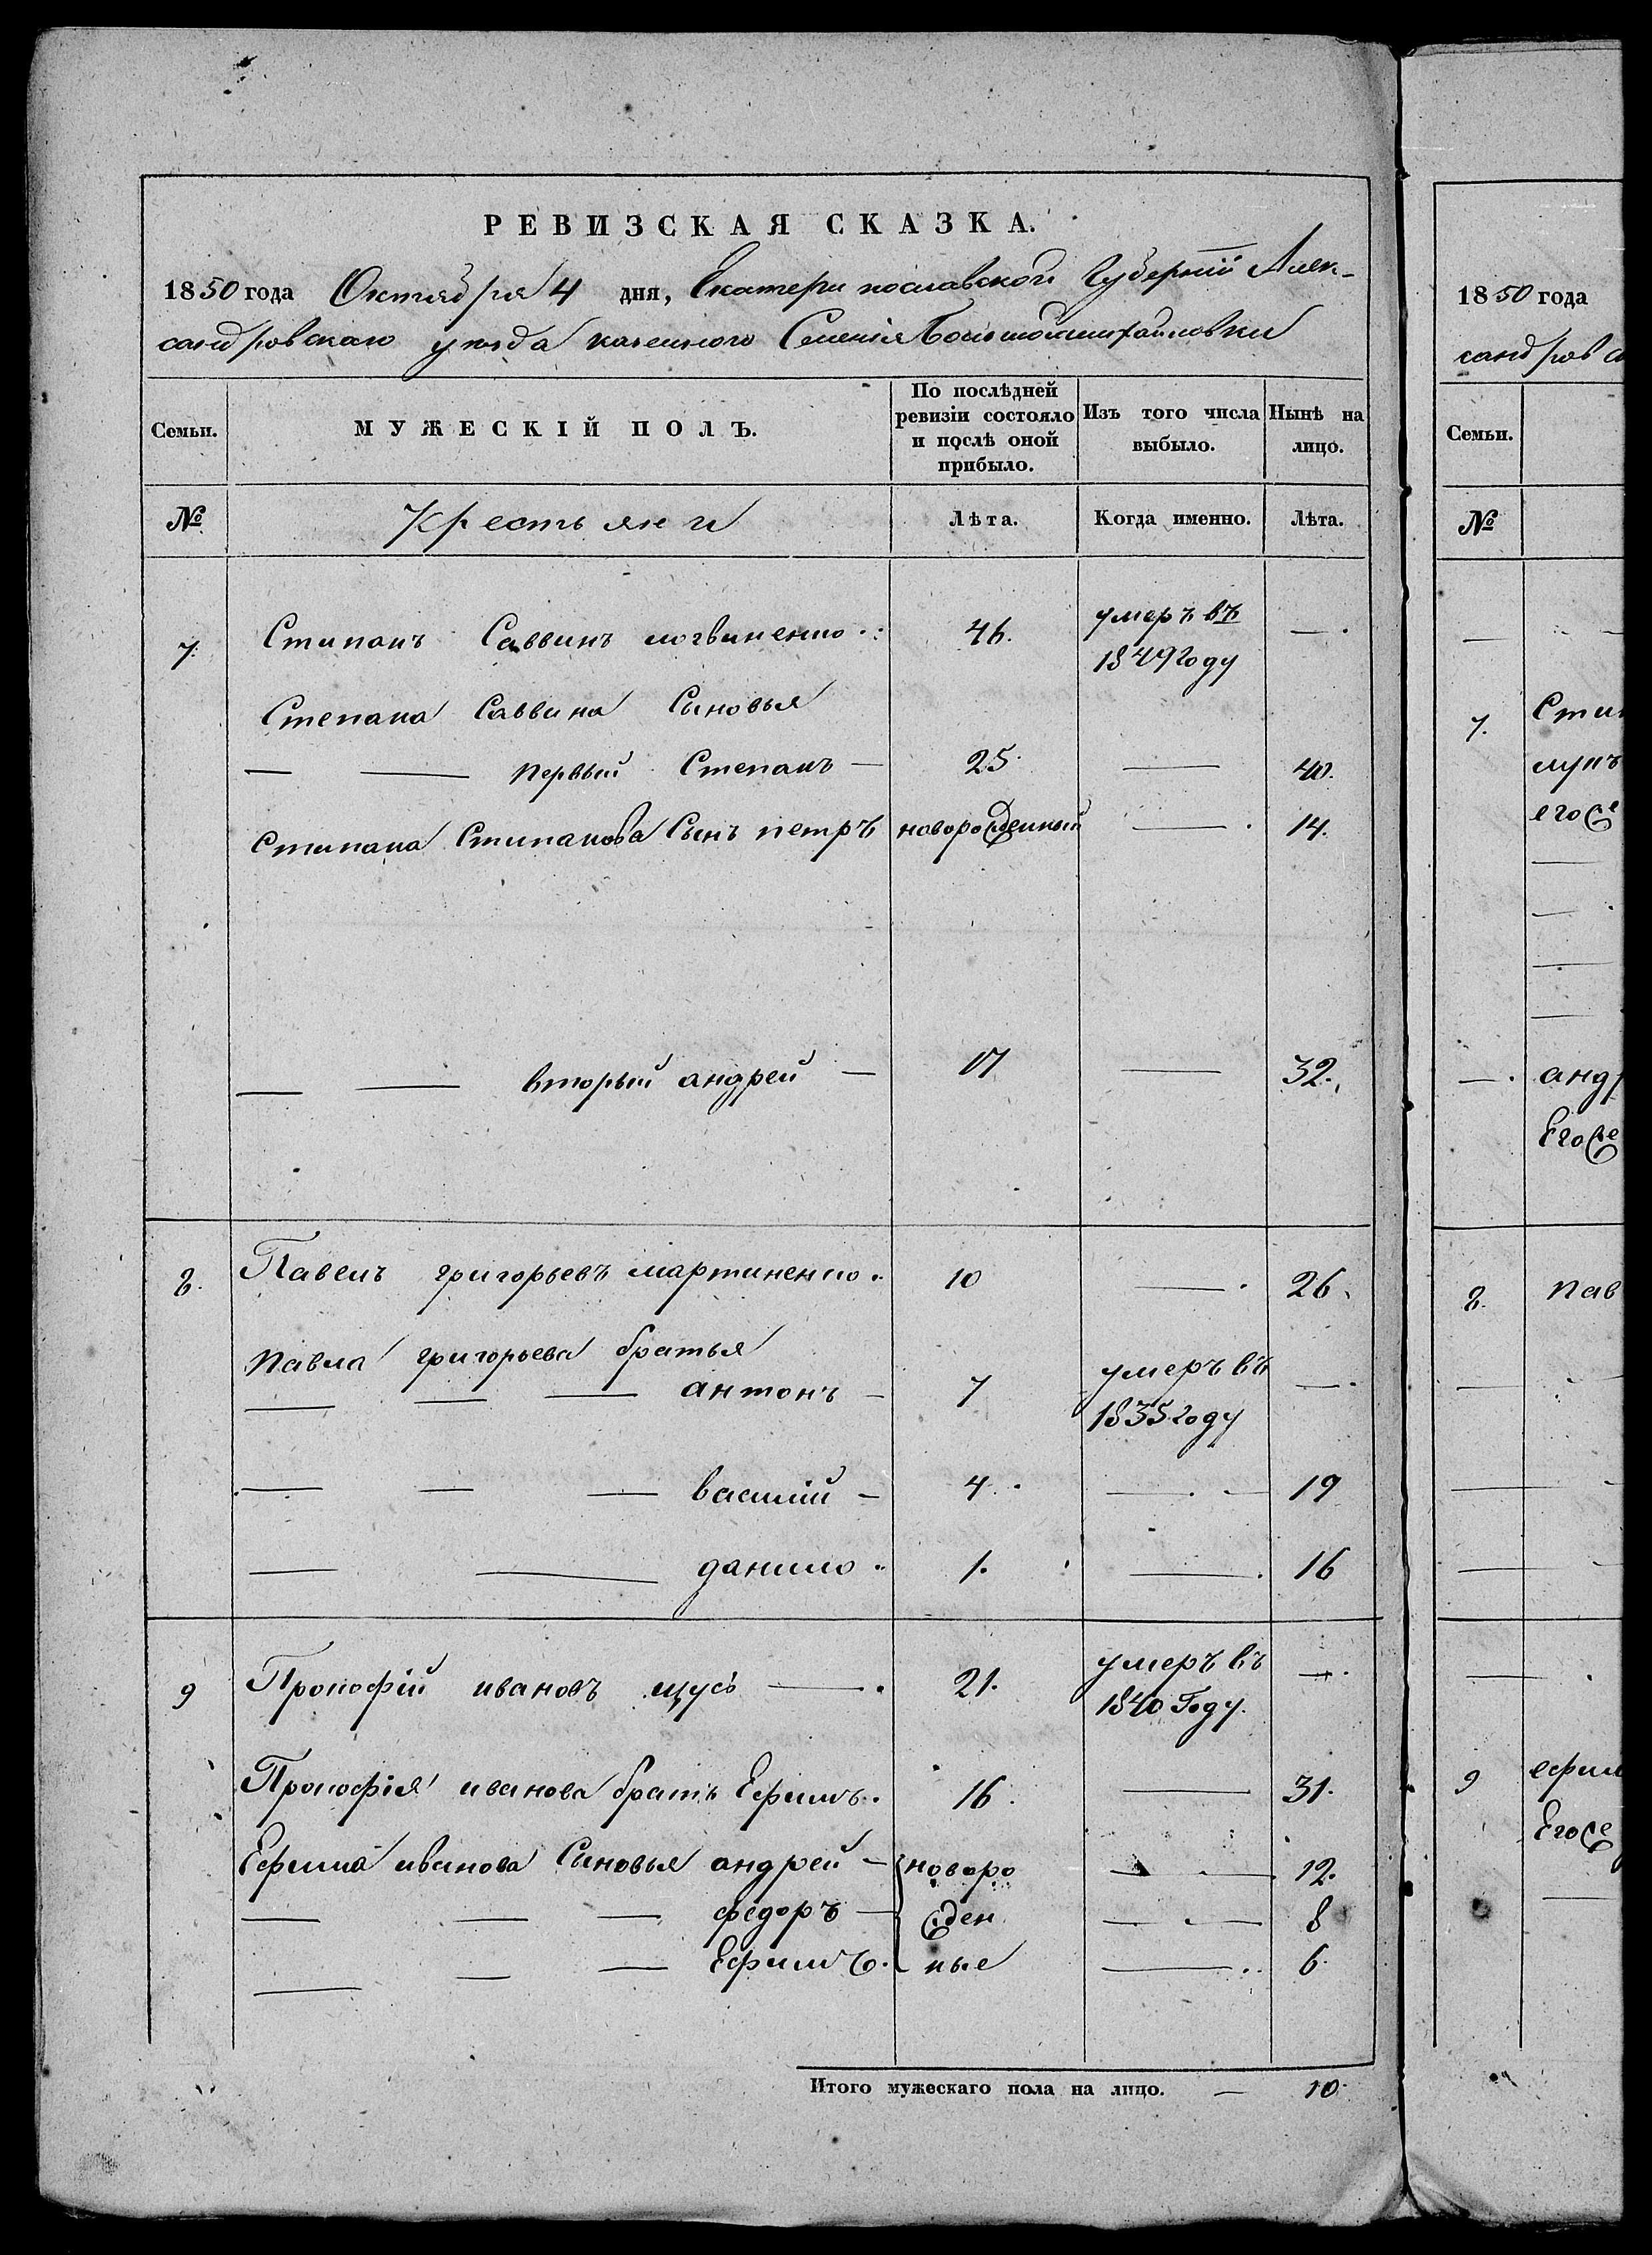 РЕВИЗСКАЯ СКАЗКА.
1850 года Октября 4 дня, Екатеринославской Губерніи Алек-
сандровскаго уѣзда казенного Селенія Большоймихайловки
Семьи. МУЖЕСКІЙ ПОЛЪ. По послѣдней ревизіи состояло и послѣ оной прибыло. Изъ того числа выбыло. Нынѣ на лицо.
№ Крестьяни Лѣта. Когда именно. Лѣта.
7. Стипанъ Саввинъ логвиненко 46. умеръ въ 1849 году — .
Степана Саввина Сыновья
— — первый Степанъ — 25. — 40.
Стипана Стипанова Сынъ петръ новорожденный — . 14.
— — вторый андрей — 17 — 32.
8. Павелъ григорьевъ мартиненко 10 — . 26.
павла григорьева братья
— — — антонъ — 7 умеръ въ 1835 году — .
— — — василій — 4. — . — 19
— — данило 1. — . 16
9 Прокофій ивановъ щусь — . 21. умеръ въ 1840 Году. — .
Прокофія иванова братъ Ефимъ. 16. — 31.
Ефима иванова Сыновья андрей — новоро — 12.
— — — федоръ — жден — . — 8
— — — Ефимъ. ные — .. 6.
Итого мужескаго пола на лицо. — 10.
1850 года
сандров
Семьи.
№
—
7. Стип
лупъ
его же
—
—
—
—
— . анд
Его же
8. пав
—
—
—
—
9 ефим
Его же
—